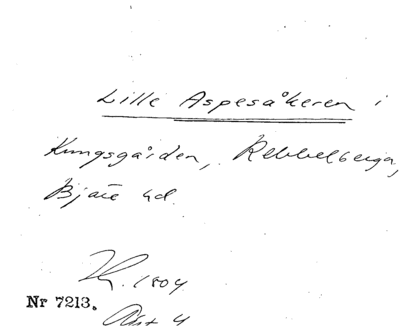 Lille Aspesåkeren i
Kungsgården, Rebbelberga,
Bjäre hd.
1804
Nr 7213.
Akt 4